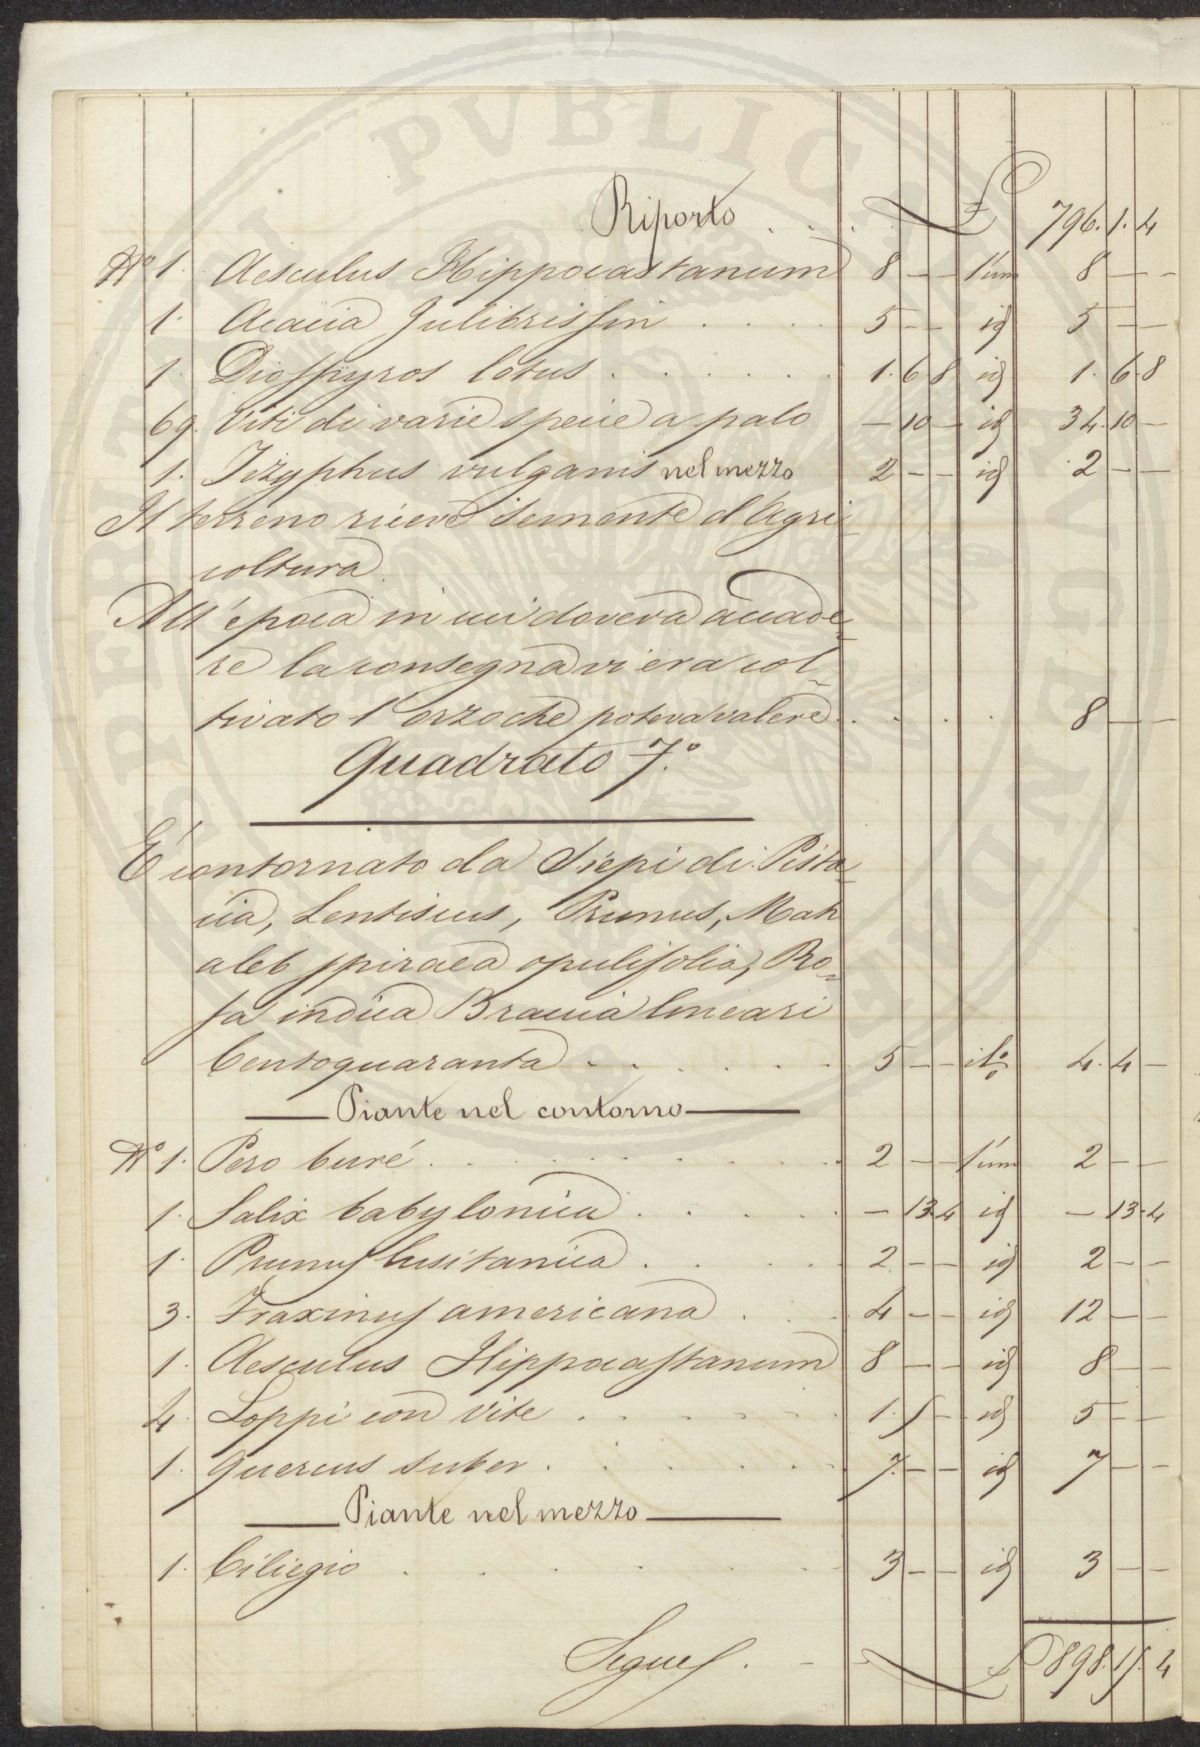 Riporto . . . . £ 796. 1. 4
N.° 1. Aesculus Hippocastanum 8 — — l'uno 8 — —
1. Acacia Julibrissin . . . . 5 — — id 5 — —
1. Diospyros lotus . . . . . . 1. 6 8 id 1. 6 8
69. Viti di varie specie a palo — 10 — id 34. 10 —
1. Zizyphus vulgaris nel mezzo 2 — — id 2 — —
Il terreno riceve semente d'Agri
coltura
All'epoca in cui doveva accade=
re la consegna vi era col=
tivato l'orzo che poteva valere . . . . 8 — —
Quadrato 7.°
È contornato da Siepi di Pista=
cia, Lentiscus, Prunus, Mah
aleb spiraea opulifolia, Ro=
sa indica Braccia lineari
Centoquaranta . . . . . . 5 — — il % 4. 4 —
Piante nel contorno
N.° 1. Pero buré . . . . . . 2 — — l'uno 2 — —
1. Salix babylonica . . . . . — 13 4 id — 13 4
1. Prunus lusitanica . . . . 2 — — id 2 — —
3. Fraxinus americana . . . 4 — — id 12 — —
1. Aesculus Hippocastanum 8 — — id 8 — —
4. Loppi con Vite . . . . . 1. 5 — id 5 — —
1. Quercus suber . . . . . . 7. — — id 7 — —
Piante nel mezzo
1. Ciliegio . . . . . . 3 — — id 3 — —
Segue . . . £ 898. 15. 4